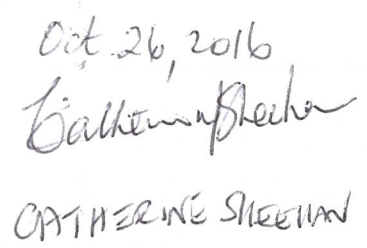 Oct. 26, 2016
Catherine Sheehan
CATHERINE SHEEHAN